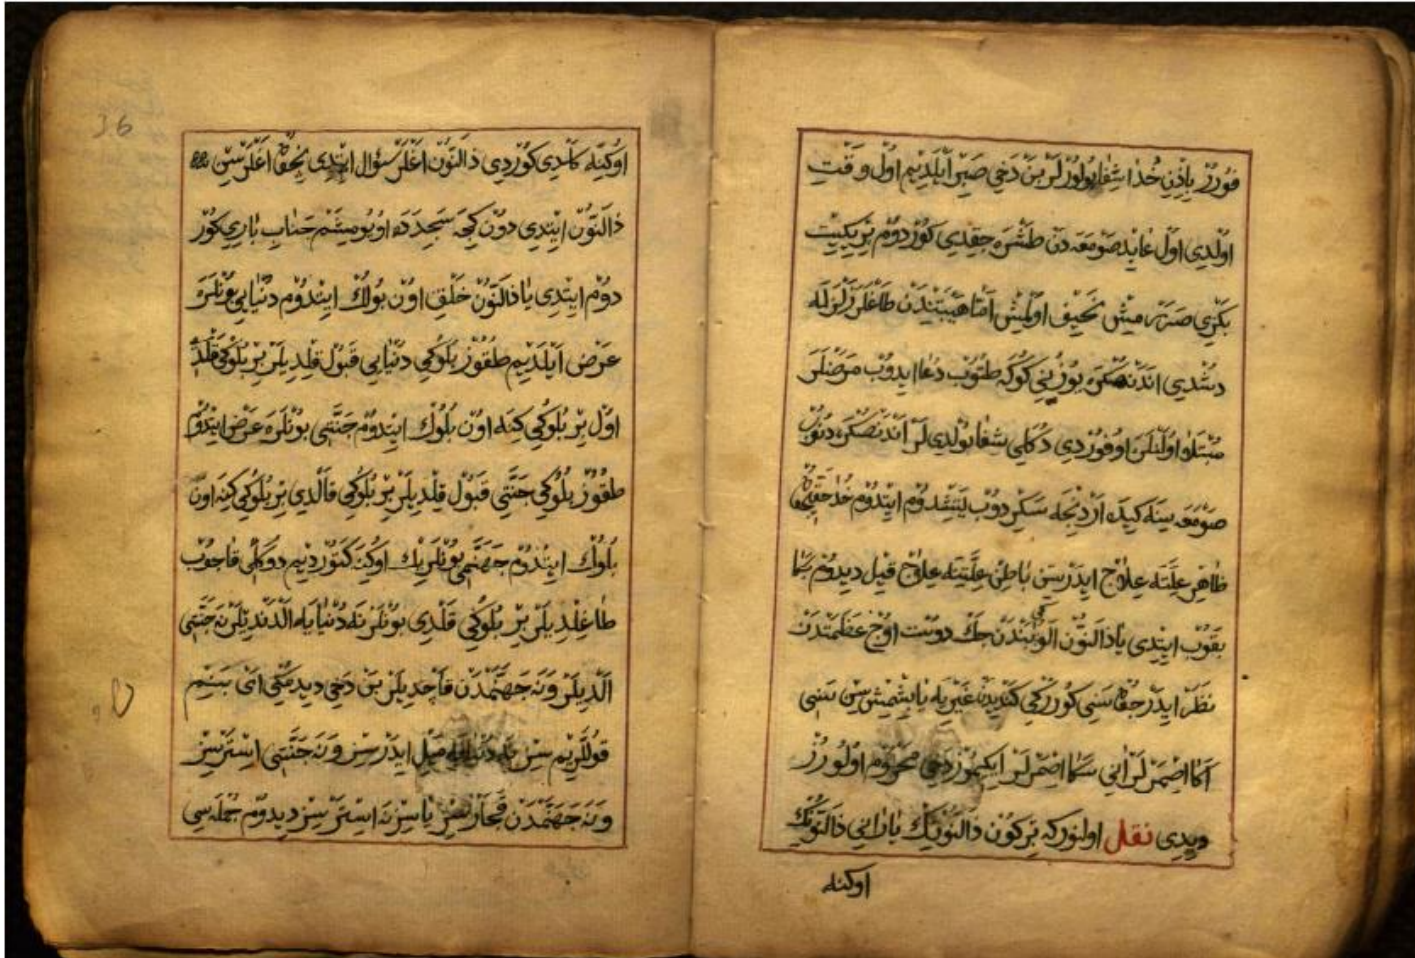 فوُرُرْ بِاِذْنِ خُدَا شِفَا بُولُورْلَرْ بَنْ دَخِي صَبْرْ اَيْلَدِيمْ اوُلْ وَقْتِ
اوُلْدِي اوُلْ عَابِدْ صَوْمَعَهْ دَنْ طَشْرَهْ چِقْدِي كوُرْدوُمْ بِرْ يِكِيتْ
بَكْزِي صَرَرْمِيشْ نَحِيفْ اوُلْمِشْ اَمَّا هَيْبَتِنْدَنْ طَاغْلَرْ زَلْزَلَهْ
دُشْدِي اَنْدَنْصُكْرَهْ يوُزُنِي كوُكَهْ طُتُوبْ دُعَا ايدوُبْ مَرَضْلَرَ
مُبْتَلَا اوُلَنْلَرَهْ اوُفوُرْدِي دُكَلِي شِفَا بوُلْدِي لَرْ اَنْدَنْصُكْرَهْ دُنوُبْ
صَوْمَعَهْ سِنَهْ كِيدَهْ اَرْدِنْجَهْ سَكِرْدوُبْ يَتِشْدوُمْ ايِتْدوُمْ خُدَا حَقِّيچُونْ
ظَاهِرْ عِلَّتَهْ عِلَاجْ ايدَرْسِنْ بَاطِنْ عِلَّتِنَهْ عِلَاجْ قِيلْ دِيدوُمْ بَكَا
بَقوُبْ ايِتْدِي يَا ذَالنُّوُنْ اَلوُكِي بَنْدَنْ چَكْ دوُسْتْ اوُجْ عَظَمَتْدَنْ
نَظَرْ ايدَرْ چُونْ سَنِي كوُرَرْكِي كَنْدِيدَنْ غَيْرِيَهْ يَاپِشْمِشْ سِنْ سَنِي
اَكَا اصْمَرْلَرْ اَنِي سَكَا اصْمَرْلَرْ ايكِيمُوزْ دَخِي مَحْرُومْ اوُلوُرُزْ
دِيدِي نقل اولنور كه بِرْكوُنْ ذَالنُّوُنِكْ يَارَانِي ذَالنُّوُنِكْ
اوكنه
36
اوُكِنَهْ كَلْدِي كوُرْدِي ذَالنُّوُنْ اَغْلَرْ سُؤَالْ ايتْدِي نِچُونْ اَغْلَرْسِنْ
ذَالنُّوُنْ ايِتْدِي دوُنْ كِجَهْ سَجْدَدَهْ اوُيوُمِشَمْ جَنَابِ بَارِي كوُرْ
دوُمْ ايِتْدِي يَا ذَالنُّوُنْ خَلْقِ اوُنْ بوُلُكْ ايِتْدوُمْ دُنْيَايِي بوُنْلَرَهْ
عَرْضْ اَيْلَدِيمْ طُقُوُزْ بُلوُكِي دُنْيَايِي قَبوُلْ قِلْدِيلَرْ بِرْ بُلوُكِي قَلْدِي
اوُلْ بِرْ بُلوُكِي كِنَهْ اوُنْ بُلُوكْ ايِتْدوُمْ جَنَّتِي بوُنْلَرَهْ عَرْضْ ايِتْدوُمْ
طُقُوُزْ بُلوُكِي جَنَّتِي قَبوُلْ قِلْدِيلَرْ بِرْ بُلوُكِي قَالْدِي بِرْ بُلوُكِي كِنَهْ اوُنْ
بُلُوكْ ايِتْدوُمْ جَهَنَّمِي بوُنْلَرِكْ اوُكِنَهْ كَتوُرْدِيمْ دوُكَلِي قَاچوُبْ
طَاغِلْدِيلَرْ بِرْ بُلوُكِي قَلْدِي بوُنْلَرْ نَهْ دُنْيَايَهْ اَلْدَنْدِيلَرْ نَهْ جَنَّتِي
اَلْدِيلَرْ وَنَهْ جَهَنَّمْدَنْ قَاچْدِيلَرْ بَنْ دَخِي دِيدِمْكِي اَيْ بَنِيمْ
قوُلْلَرِيمْ سِزْ نَهْ دُنْيَايَهْ مَيْلْ ايدَرْسِزْ وَنَهْ جَنَّتِي اِسْتَرْسِزْ
وَنَهْ جَهَنَّمْدَنْ قَچَارْسِزْ يَا سِزْ نَهْ اِسْتَرْسِزْ دِيدوُمْ جُمْلَهْ سِي